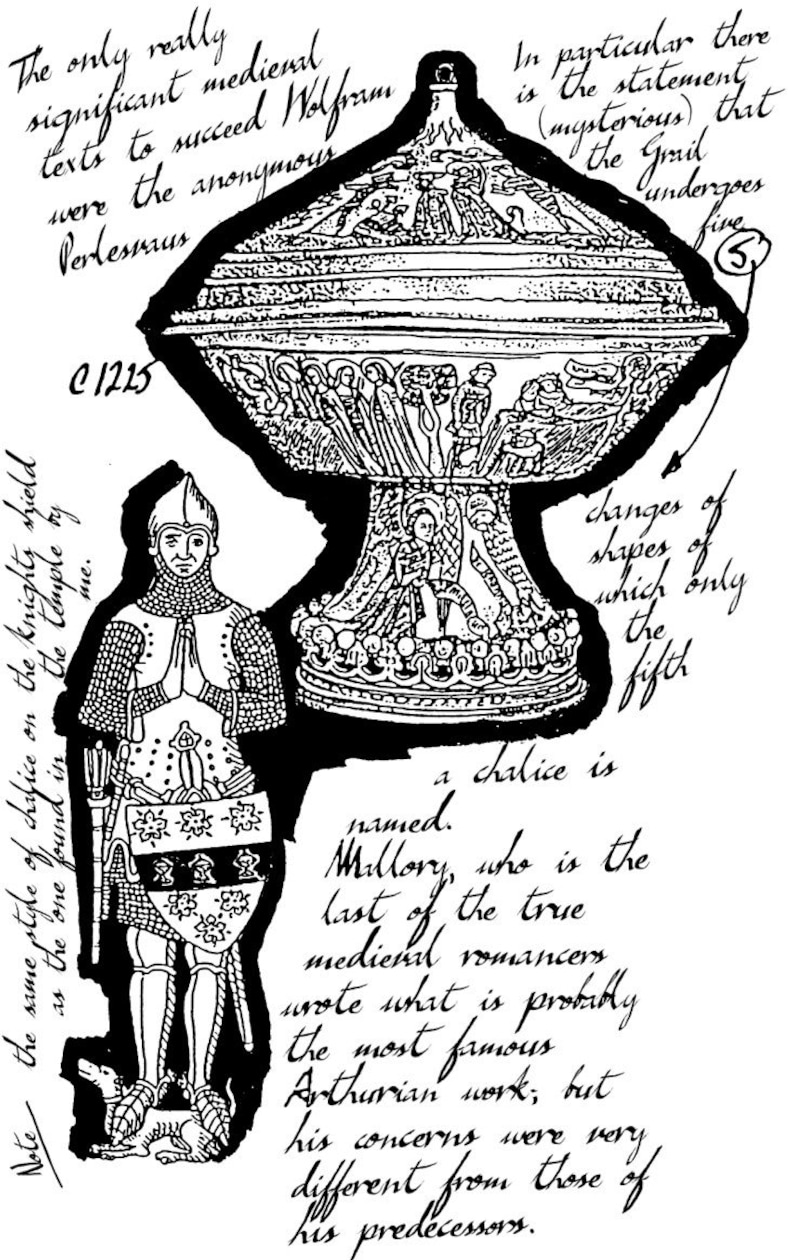 The only really
significant medieval
texts to succeed Wolfram
were the anonymous
Perlesvaus
C1225
In particular there
is the statement
(mysterious) that
the Grail
undergoes
five
5
changes of
shapes of
which only
the
fifth
a chalice is
named.
Mallory, who is the
last of the true
medieval romancers
wrote what is probably
the most famous
Arthurian work; but
his concerns were very
different from those of
his predecessors.
Note the same style of chalice on the knights shield
as the one found in the temple by
me.